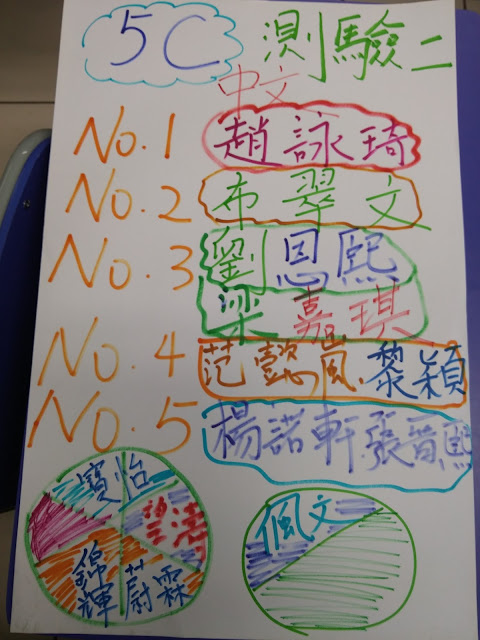 5C 測驗二
中文
No.1 趙詠琦
No.2 布翠文
No.3 劉恩熙
梁嘉琪
No.4 范懿風 黎穎
No.5 楊諾軒 張晉熙
寶怡
錦輝
蔚霖
佩文